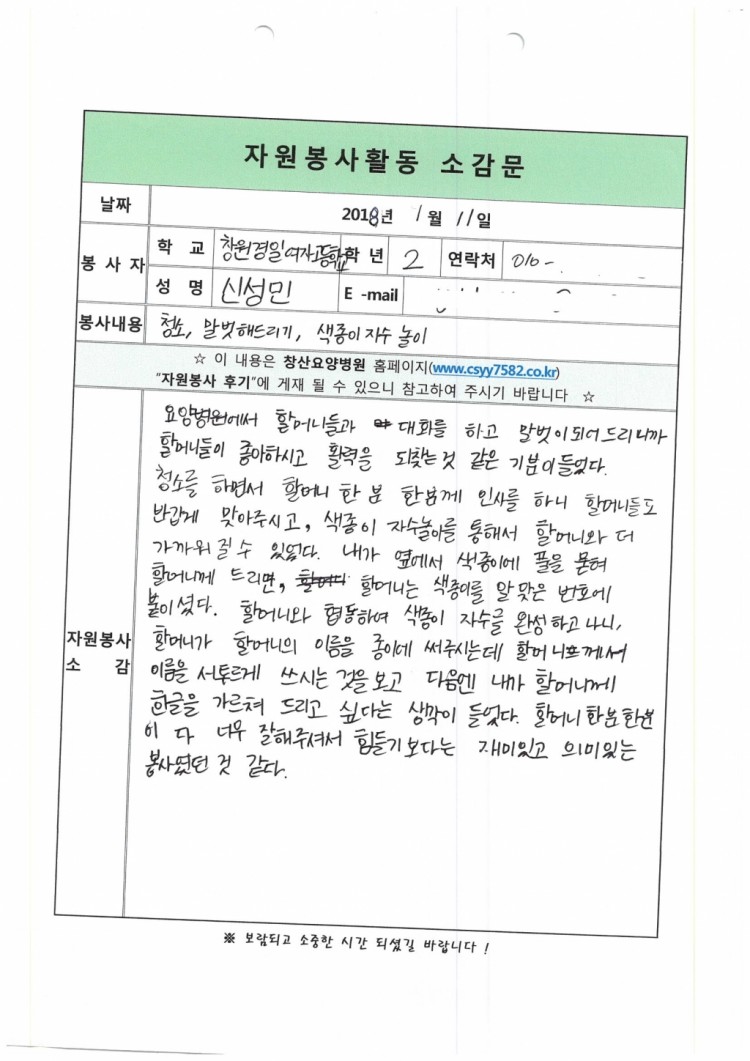 자원봉사활동 소감문
날짜 2018년 1월 11일
봉사자 학 교 창원경일여자고등학교 학 년 2 연락처 010-
성 명 신성민 E -mail
봉사내용 청소, 말벗해드리기, 색종이 자수 놀이
☆ 이 내용은 창산요양병원 홈페이지(www.csyy7582.co.kr)
"자원봉사 후기"에 게재 될 수 있으니 참고하여 주시기 바랍니다 ☆
자원봉사 소 감
요양병원에서 할머니들과 대화를 하고 말벗이 되어 드리니까
할머니들이 좋아하시고 활력을 되찾는 것 같은 기분이 들었다.
청소를 하면서 할머니 한 분 한분께 인사를 하니 할머니들도
반갑게 맞아주시고, 색종이 자수놀이를 통해서 할머니와 더
가까워 질 수 있었다. 내가 옆에서 색종이에 풀을 묻혀
할머니께 드리면, 할머니 할머니는 색종이를 알맞은 번호에
붙이셨다. 할머니와 협동하여 색종이 자수를 완성하고 나니,
할머니가 할머니의 이름을 종이에 써주시는데 할머니께서
이름을 서투르게 쓰시는 것을 보고 다음엔 내가 할머니께
한글을 가르쳐 드리고 싶다는 생각이 들었다. 할머니 한분 한분
이 다 너무 잘해주셔서 힘들기 보다는 재미있고 의미있는
봉사였던 것 같다.
※ 보람되고 소중한 시간 되셨길 바랍니다 !